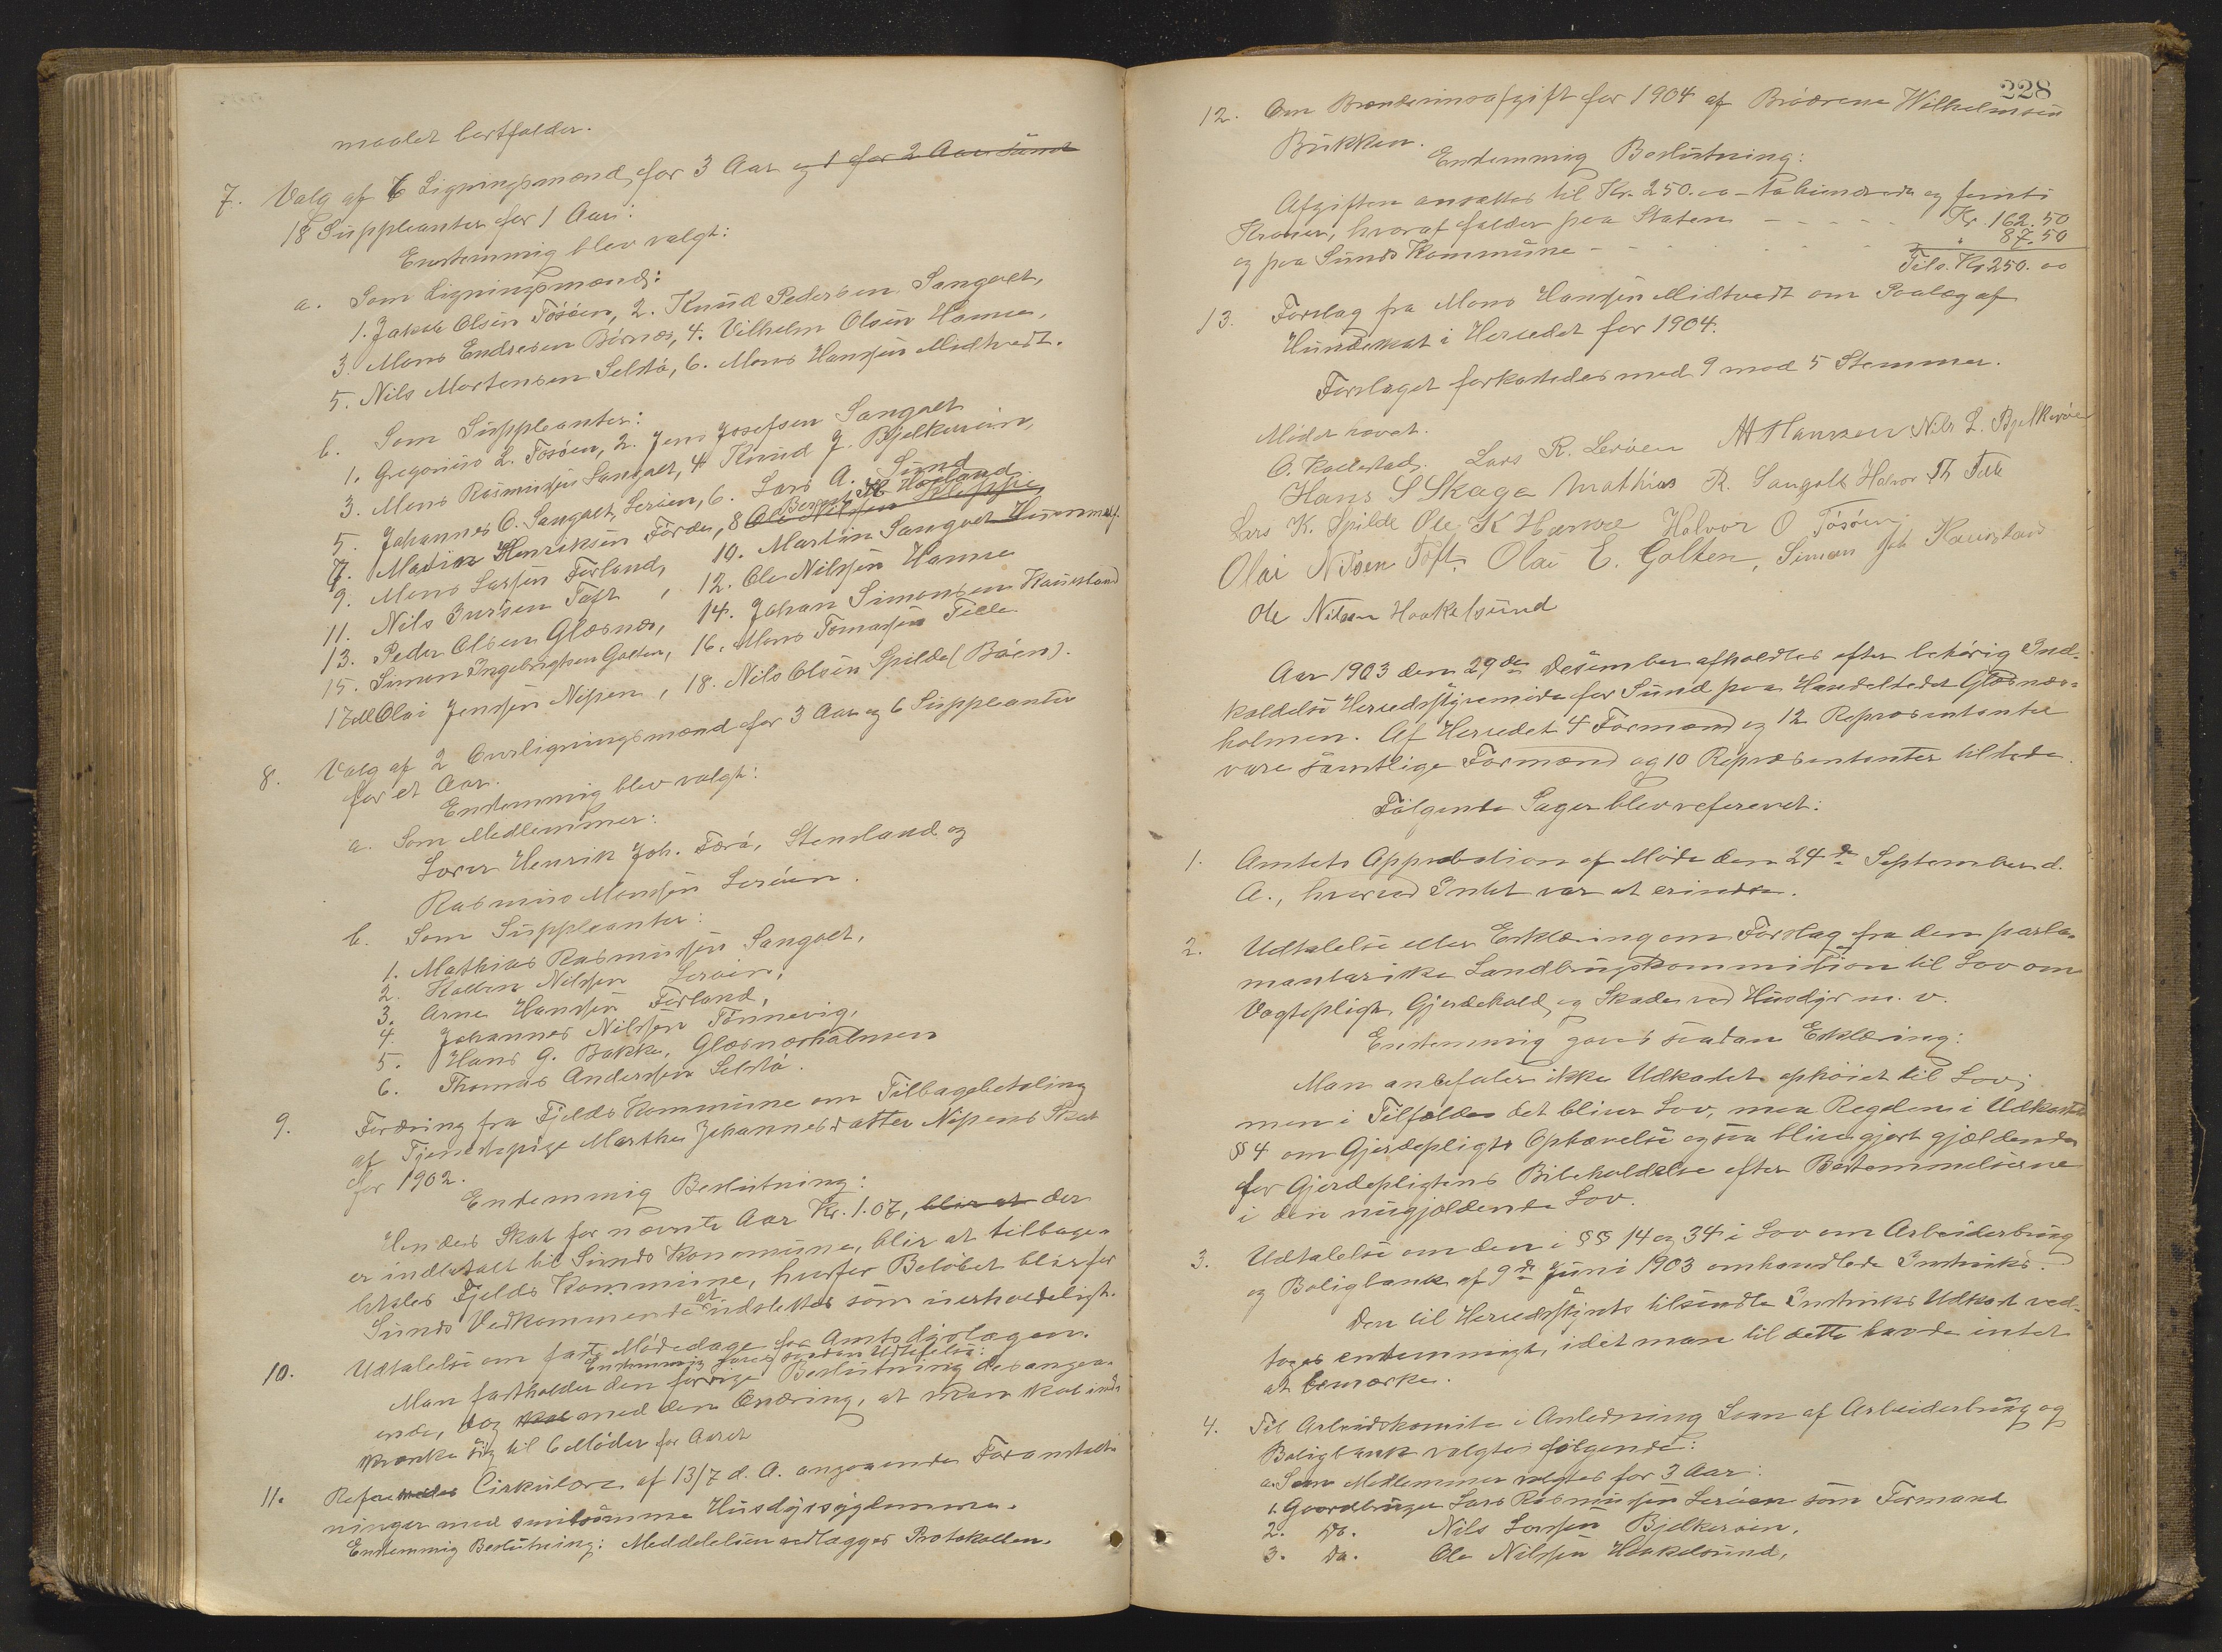 maalet bortfalder.
7. Valg af 6 Ligningsmænd for 3 Aar og 1 for 2 Aar samt
18 Suppleanter for 1 Aar:
Enstemmig blev valgt:
a. Som Ligningsmænd:
1. Jakob Olsen Tösöen, 2. Knud Pedersen Sangolt,
3. Mons Endresen Börnes, 4. Vilhelm Olsen Hamre,
5. Nils Mortensen Selstö, 6. Mons Hanssen Midtvedt.
b. Som Suppleanter:
1. Gregorius L. Tösöen, 2. Jens Josefsen Sangolt
3. Mons Rasmussen Sangolt, 4 Knud J. Bjelkeröin,
5. Johannes O. Sangolt, Leröen, 6. Lars A. Sund
Bernt H Hovland
7. Matias Henriksen Förde, 8 Ole Nilssen Kleppe,
9. Mons Larssen Førland, 10. Martin Sangolt Hummelsf.
11. Nils Iversen Toft, 12. Ole Nilssen Hamre
13. Peder Olsen Glæsnes, 14. Johan Simonsen Kausland
15. Simon Ingebrigtsen Golten, 16. Mons Tomassen Telle
17 Olai Jenssen Nipen, 18. Nils Olsen Spilde (Böen).
8. Valg af 2 Overligningsmænd for 3 Aar og 6 Suppleanter
for et Aar.
Enstemmig blev valgt:
a. Som Medlemmer:
Lærer Henrik Joh. Tærö, Stensland og
Rasmus Monssen Leröen.
b. Som Suppleanter:
1. Mathias Rasmussen Sangolt,
2. Nilssen Leröin,
3. Arne Hanssen Førland,
4. Johannes Nilssen Tönnevig,
5. Hans G. Bakke, Glæsnesholmen
6. Thomas Anderssen Selstö.
9. Fordring fra Fjelds Kommune om Tilbagebetaling
af Tjenestepige Marthe Johannesdatter Nipens Skat
for 1902.
Enstemmig Beslutning:
Hendes Skat for nævnte Aar Kr. 1.07, blir at der
er indbetalt til Sunds Kommune, blir at tilbage-
betales Fjelds Kommune, hvorfor Beløbet blir for
Sunds Vedkommende at udslettes som uerholdeligt.
10. Udtalelse om faste Mödedage for Amtsdyrlægen.
Enstemmig gaves saadan Udtalelse:
Man fastholder den forrige Beslutning desangaa-
ende, dog skal med den Ændring, at man kal ind-
skrænke sig til 6 Möder for Aaret
11. Refereredes Cirkulære af 13/7 d. A. angaaende Foranstalt-
ninger mod smitsomme Husdyrsygdomme.
Enstemmig Beslutning: Meddelelsen vedlægges Protokollen.
228
12. Om Brænderinsafgift for 1904 af Brödrene Wilhelmsen
Bukken.
Enstemmig Beslutning:
Afgiften ansættes til Kr. 250.00 – to hundrede og femti
Kroner, hvoraf falder paa Staten - - - - Kr. 162.50
og paa Sunds Kommune - - - - " 87.50
Tils. Kr 250.00
13. Forslag fra Mons Hanssen Midtvedt om Paalæg af
Hundeskat i Herredet for 1904.
Forslaget forkastedes med 9 mod 5 Stemmer.
Mödet hævet.
O. Kallestad. Lars R. Leröen M Hanssen Nils L. Bjelkeröen
Hans S Skage Mathias R. Sangolt Halvor Th Tele
Lars K. Spilde Ole K Hamre Halvor O Tösöen
Olai Nilsen Toft. Olai E. Golten, Simon Joh Kausland
Ole Nilssen Haakelsund
Aar 1903 den 29de Desember afholdtes efter behørig Ind-
kaldelse Herredsstyremøde for Sund paa Handelstedet Glæsnes-
holmen. Af Herredet 4 Formænd og 12 Repræsentanter
vare samtlige Formænd og 10 Repræsentanter tilstede.
Følgende Sager blev refereret:
1. Amtets Approbation af Möde den 24de September d.
A., hvorved Intet var at erindre.
2. Udtalelse eller Erklæring om Forslag fra den parla-
mentariske Landbrugskommission til Lov om
Vogtepligt, Gjerdehold og Skade ved Husdyr m. v.
Enstemmig gaves saadan Erklæring:
Man anbefaler ikke Udkastet ophøiet til Lov;
men i Tilfælde det bliver Lov, maa Reglene i Udkastets
§ 4 om Gjerdepligts Ophævelse ogsaa blive gjort gjældende
for Gjerdepligtens Bibeholdelse efter Bestemmelserne
i den nugjældende Lov.
3. Udtalelse om den i §§ 14 og 34 i Lov om Arbeiderbrug
og Boligbank af 9de Juni 1903 omhandlede Instruks.
Den til Herredsstyret tilsendte Instruks Udkast ved-
toges enstemmigt, idet man til dette havde intet
at bemærke.
4. Til Arbeidskomite i Anledning Loven af Arbeiderbrug og
Boligbank valgtes følgende:
a. Som Medlemmer valgtes for 3 Aar:
1. Gaardbruger Lars Rasmussen Leröen som Formand
2. Do. Nils Larssen Bjelkeröin,
3. Do. Ole Nilssen Haakelsund,